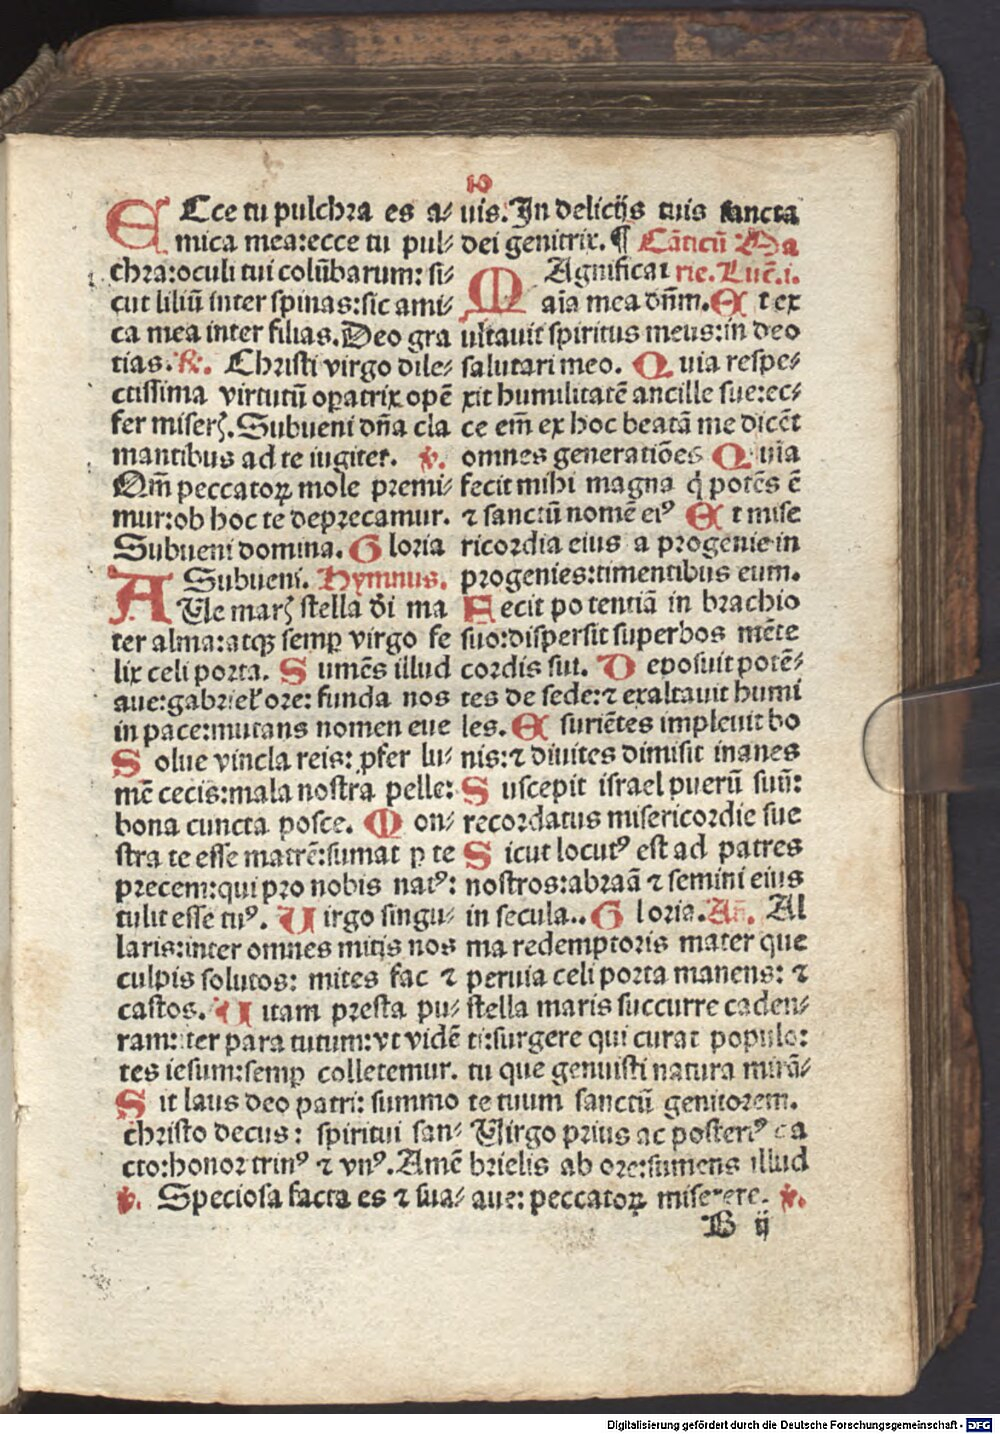 10
ECce tu pulchra es a⸗
mica mea:ecce tu pul⸗
chra:oculi tui colũbarum: si⸗
cut liliũ inter spinas:sic ami⸗
ca mea inter filias.Deo gra
tias. ℟. Christi virgo dile⸗
ctissima virtutũ oꝑatrix opẽ
fer miserꝭ.Subueni dña cla
mantibus ad te iugiter. ℣.
Qm̃ peccatoꝝ mole premi⸗
mur:ob hoc te deprecamur.
Subueni domina. Gloria
Subueni. Hymnus.
AUe marꝭ stella di ma
ter alma:atqꝫ semꝑ virgo fe
lix celi porta. Sumẽs illud
aue:gabrieł ore: funda nos
in pace:mutans nomen eue
Solue vincla reis: ꝓfer lu⸗
mẽ cecis:mala nostra pelle:
bona cuncta posce. Mon⸗
stra te esse matrẽ:sumat ꝑ te
precem:qui pro nobis natꝰ:
tulit esse tuꝰ. Uirgo singu⸗
laris:inter omnes mitis nos
culpis solutos: mites fac ⁊
castos. Uitam presta pu⸗
ram:iter para tutum:vt vidẽ
tes iesum:semꝑ colletemur.
Sit laus deo patri: summo
christo decus: spiritui san⸗
cto:honor trinꝰ ⁊ vnꝰ.Amẽ
℣. Speciosa facta es ⁊ sua⸗
uis.In delicijs tuis sancta
dei genitrix. ¶ Cãticũ Ma
MAgnificat rie. Luc̃.i.
aĩa mea dñm.Et ex
ultauit spiritus meus:in deo
salutari meo. Quia respe⸗
xit humilitatẽ ancille sue:ec⸗
ce em̃ ex hoc beatã me dicẽt
omnes generatiões Quia
fecit mihi magna q̇ potẽs ẽ
⁊ sanctũ nomẽ eiꝰ Et mise
ricordia eius a progenie in
progenies:timentibus eum.
Fecit potentiã in brachio
suo:dispersit superbos mẽte
cordis sui. Deposuit potẽ⸗
tes de sede:⁊ exaltauit humi
les. Esuriẽtes impleuit bo
nis:⁊ diuites dimisit inanes
Suscepit israel puerũ suũ:
recordatus misericordie sue
Sicut locutꝰ est ad patres
nostros:abraã ⁊ semini eius
in secula.. Gloria. Añ. Al
ma redemptoris mater que
peruia celi porta manens: ⁊
stella maris succurre caden⸗
ti:surgere qui curat populo:
tu que genuisti natura mirã⸗
te tuum sanctũ genitorem.
Uirgo prius ac posteriꝰ ga
brielis ab ore:sumens illud
aue: peccatoꝝ miserere. ℣.
B ij
Digitalisierung gefördert durch die Deutsche Forschungsgemeinschaft - DFG